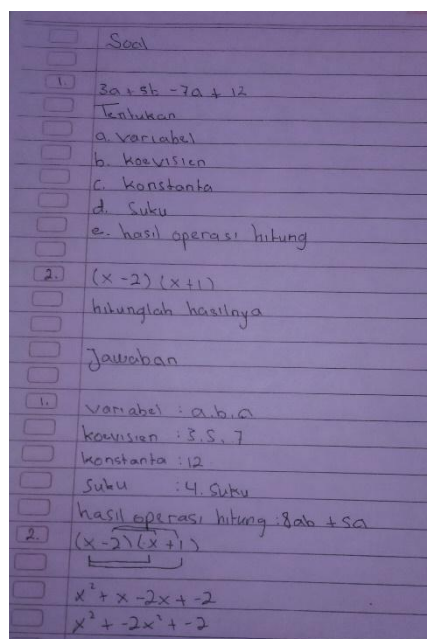 Soal
1. 3a + 5b - 7a + 12
Tentukan
a. variabel
b. koevisien
c. konstanta
d. suku
e. hasil operasi hitung
2. (x - 2) (x + 1)
hitunglah hasilnya
Jawaban
1. variabel : a.b.a
koevisien : 3.5.7
konstanta : 12
suku : 4. suku
hasil operasi hitung : 8ab + 5a
2. (x - 2) (x + 1)
x² + x - 2x + -2
x² + -2x² + -2